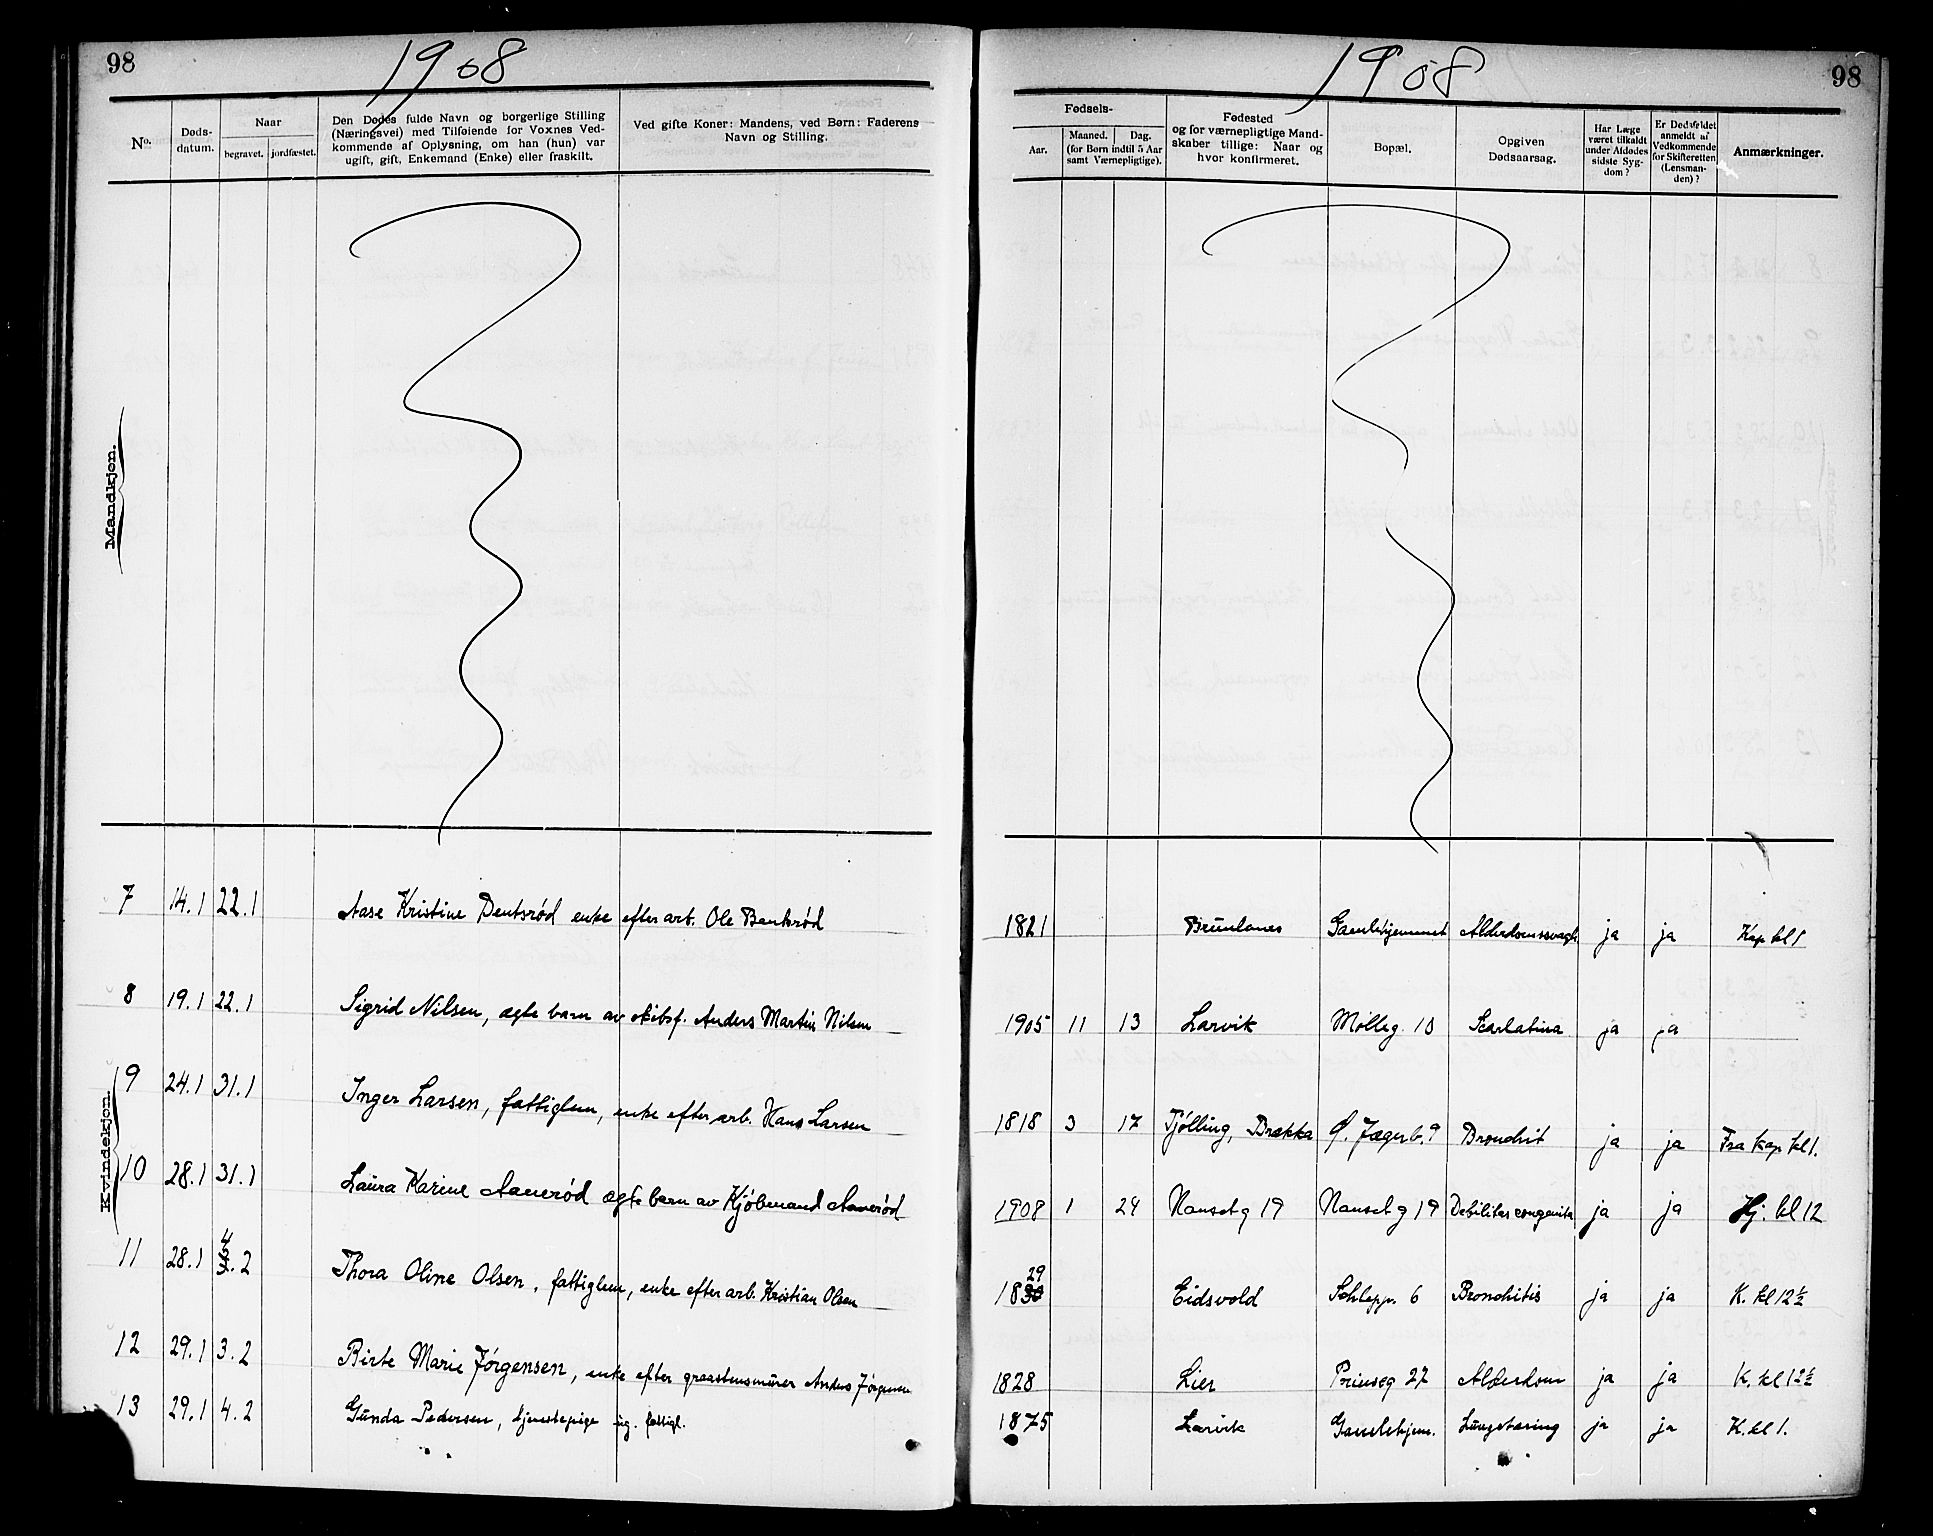 98
1908
No.
Døds-
datum.
Naar
begravet.
jordfæstet.
Den Dødes fulde Navn og borgerlige Stilling
(Næringsvei) med Tilføiende for Voxnes Ved-
kommende af Oplysning, om han (hun) var
ugift, gift, Enkemand (Enke) eller fraskilt.
Ved gifte Koner: Mandens, ved Børn: Faderens
Navn og Stilling.
1908
98
Fødsels-
Aar.
Maaned.
Dag.
(for Børn indtil 5 Aar
samt Værnepligtige).
Fødested
og for værnepligtige Mand-
skaber tillige: Naar og
hvor konfirmeret.
Bopæl.
Opgiven
Dødsaarsag.
Har Læge
været tilkaldt
under Afdødes
sidste Syg-
dom?
Er Dødsfaldet
anmeldt af
Vedkommende
for Skifteretten
(Lensman-
den)?
Anmærkninger.
Mandkjøn.
Kvindekjøn.
7 14.1 22.1 Aase Kristine Bentsrød enke efter arb. Ole Bentsrød 1821 Brunlanes Gamlehjemmet Alderdomssvagh ja ja Kap kl 1
8 19.1 22.1 Sigrid Nilsen, ægte barn av skibsf. Anders Martin Nilsen 1905 11 13 Larvik Mølleg. 10 Scarlatina ja ja
9 24.1 31.1 Inger Larsen, fattiglem, enke efter arb. Hans Larsen 1818 3 17 Tjølling, Brekka Ø. Jægerb. 9 Bronchit ja ja Fra Kap kl 1.
10 28.1 31.1 Laura Karine Aamerød ægte barn av Kjøbmand Aamerød 1908 1 24 Nanset g 19 Nanset g 19 Debilitas congenita ja ja Hj. kl 12
11 28.1 4.2 Thora Oline Olsen, fattiglem, enke efter arb. Kristian Olsen 1829 Eidsvold Schlepp. 6 Bronchitis ja ja K. kl 12½
12 29.1 3.2 Birte Marie Jørgensen, enke efter graastensmurer Anders Jørgensen 1828 Lier Prinseg 27 Alderdom ja ja K. kl 12½
13 29.1 4.2 Gunda Pedersen, tjenestepige ug. fattigl. 1875 Larvik Gamlehjem. Lungetæring ja ja K. kl 1.